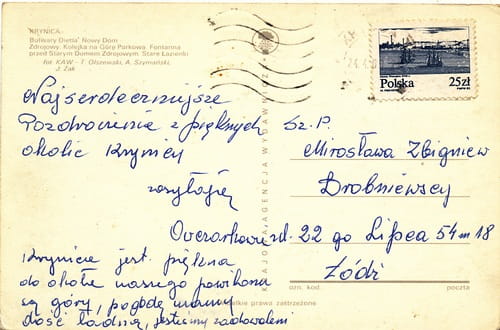 KRYNICA:
Bulwary Dietla' Nowy Dom
Zdrojowy. Kolejka na Górę Parkową. Fontanna
przed Starym Domem Zdrojowym. Stare Łazienki
fot. KAW - T. Olszewski, A. Szymański,
J. Żak
Najserdeczniejsze
Pozdrowienia z pięknych
okolic Krynicy
wysyłają
Krynica jest piękna
do okoła naszego
są góry, pogodę mamy
dość ładną, jesteśmy zadowoleni
KRAJOWA AGENCJA WYDAWNICZA
Polska
25zł
Sz. P.
Mirosława Zbigniew
Drobniewscy
ul. 22 go Lipca 54 m 18
Łódź
ozn. kod
poczta
wszelkie prawa zastrzeżone